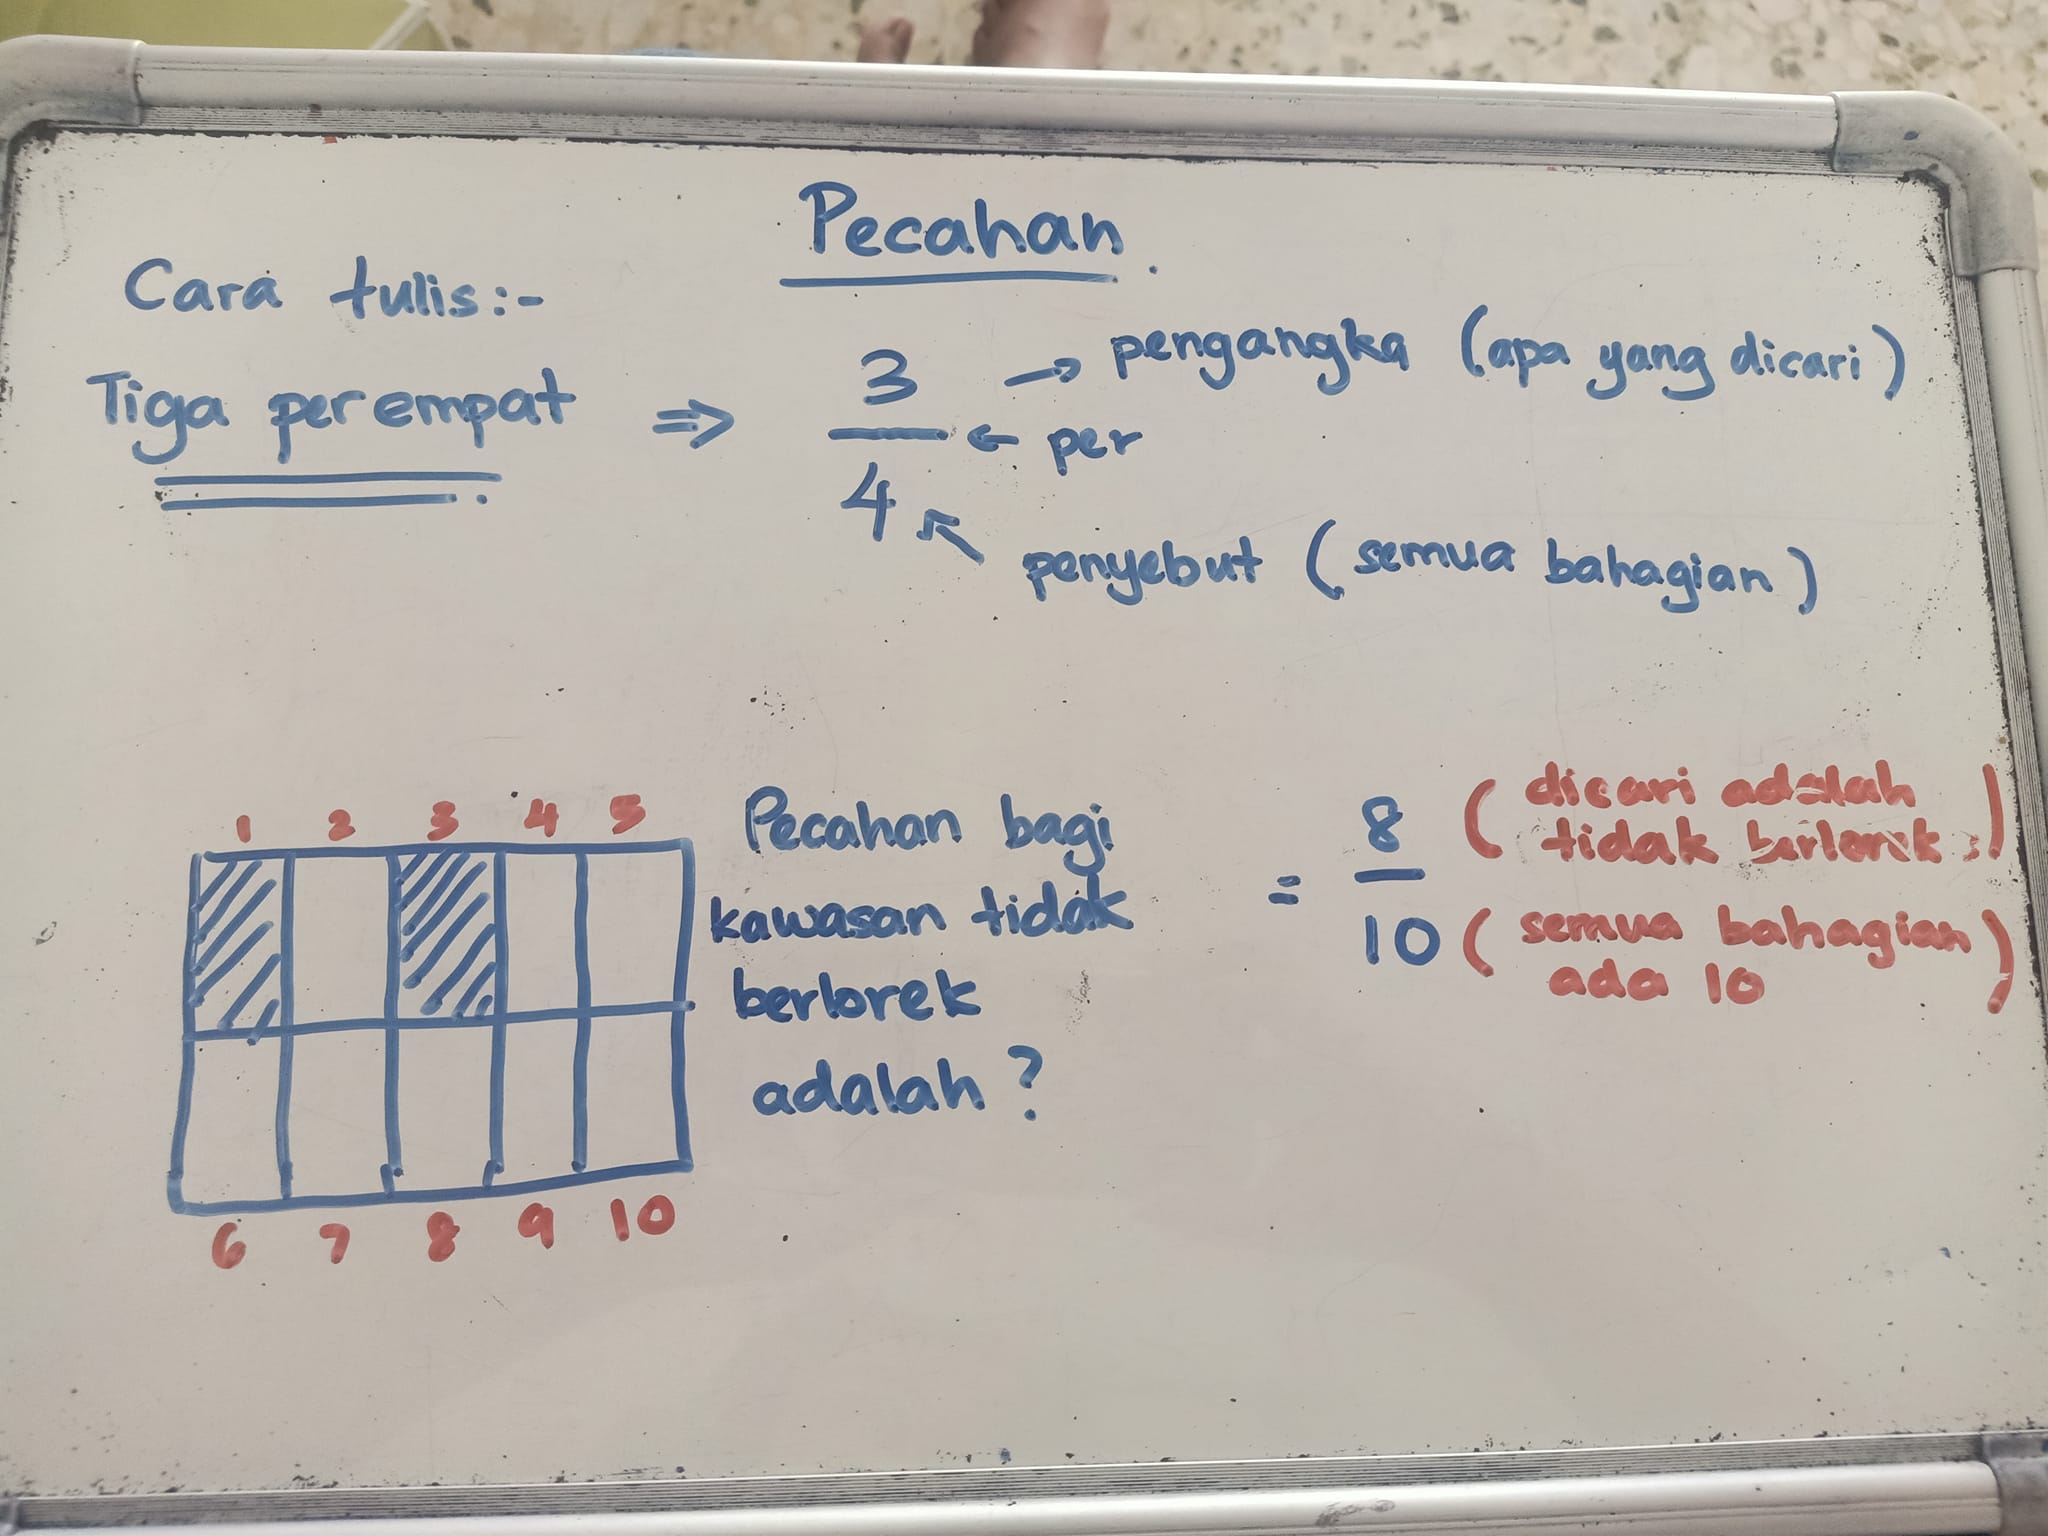 Pecahan
Cara tulis:-
Tiga per empat ⇒ 3/4
→ pengangka (apa yang dicari)
← per
penyebut (semua bahagian)
1 2 3 4 5
6 7 8 9 10
Pecahan bagi
kawasan tidak
berlorek
adalah?
= 8/10
(dicari adalah
tidak berlorek)
(semua bahagian
ada 10)